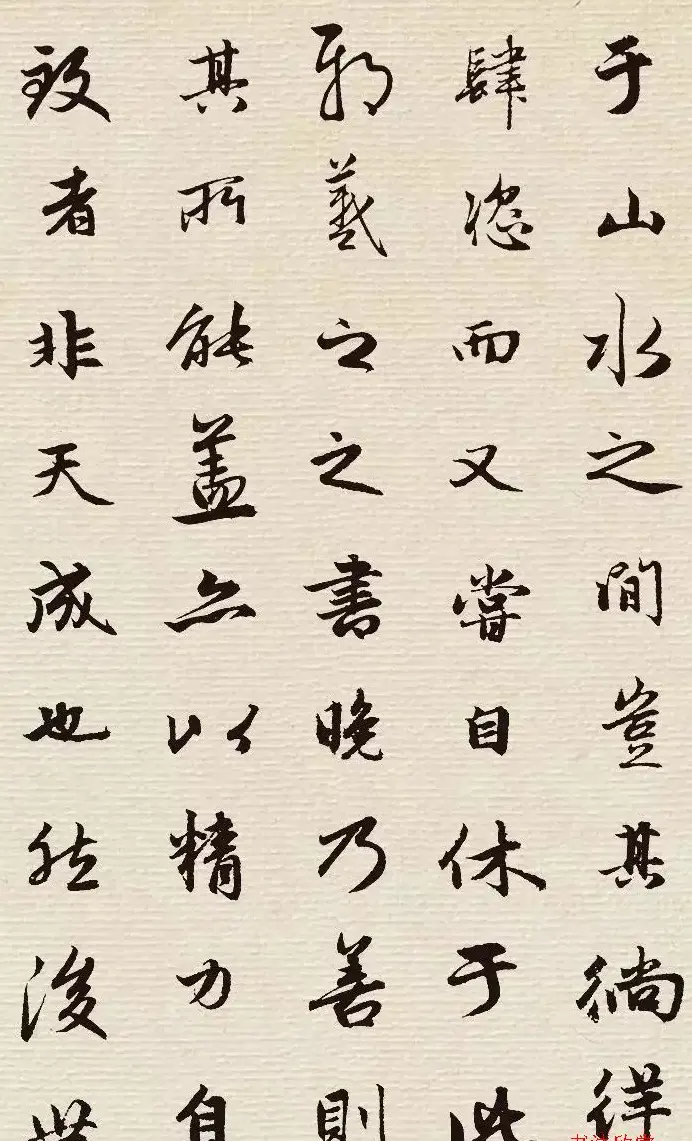 于山水之間豈其徜徉
肆恣而又嘗自休于此
邪羲之之書晚乃善則
其所能盖亦以精力自
致者非天成也然後世